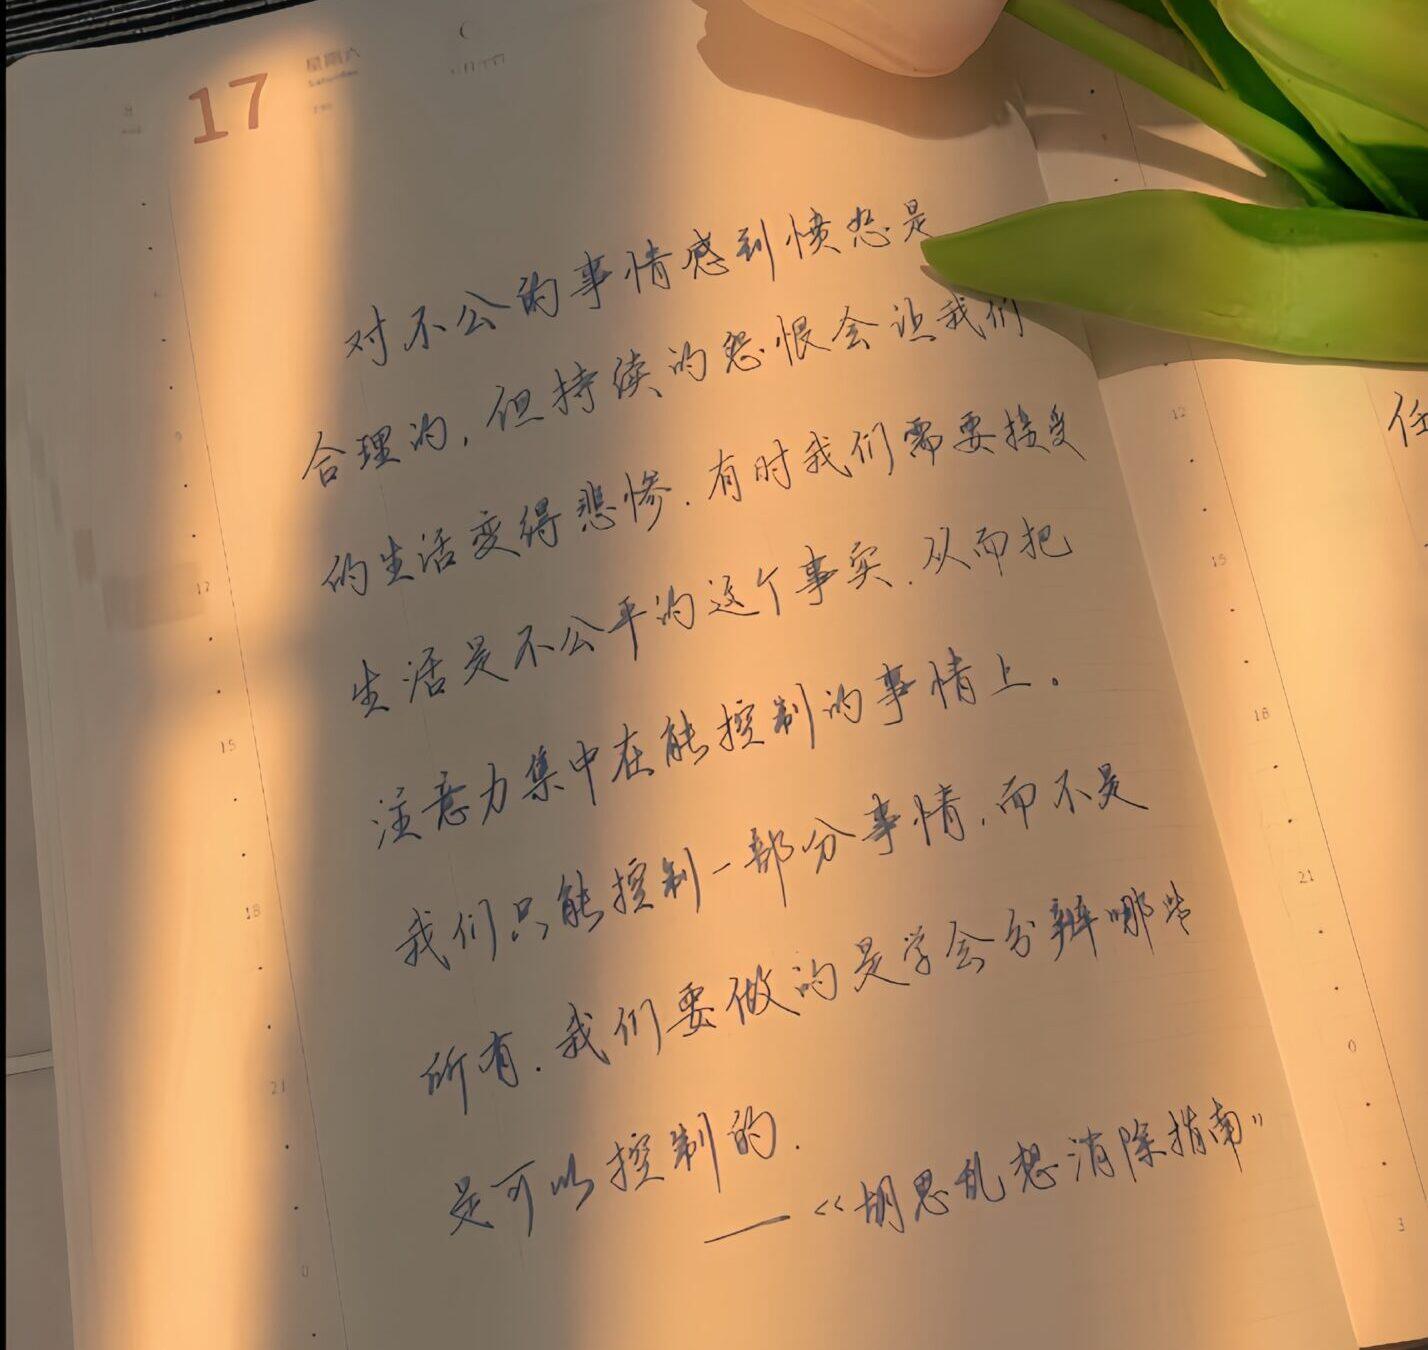 17
星期六
Saturday
对不公的事情感到愤怒是
合理的，但持续的怨恨会让我们
的生活变得悲惨．有时我们需要接受
生活是不公平的这个事实．从而把
注意力集中在能控制的事情上。
我们只能控制一部分事情，而不是
所有．我们要做的是学会分辨哪些
是可以控制的．
——《胡思乱想消除指南》
8
9
12
15
18
21
0
12
15
18
21
0
3
任